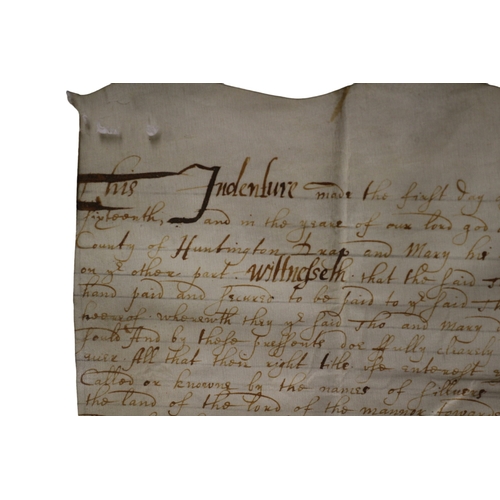 This Indenture made the first day
sixteenth, and in the yeare of our lord god
County of Huntington Drap and Mary his
on ye other part. Wittnesseth that the said
hand paid and secured to be paid to ye said
heereof wherewth they ye said Tho and Mary
sould And by these presents doe fully clearely
euer All that their right title use interest
Called or knowne by the names of
the land of the lord of the mannor towards